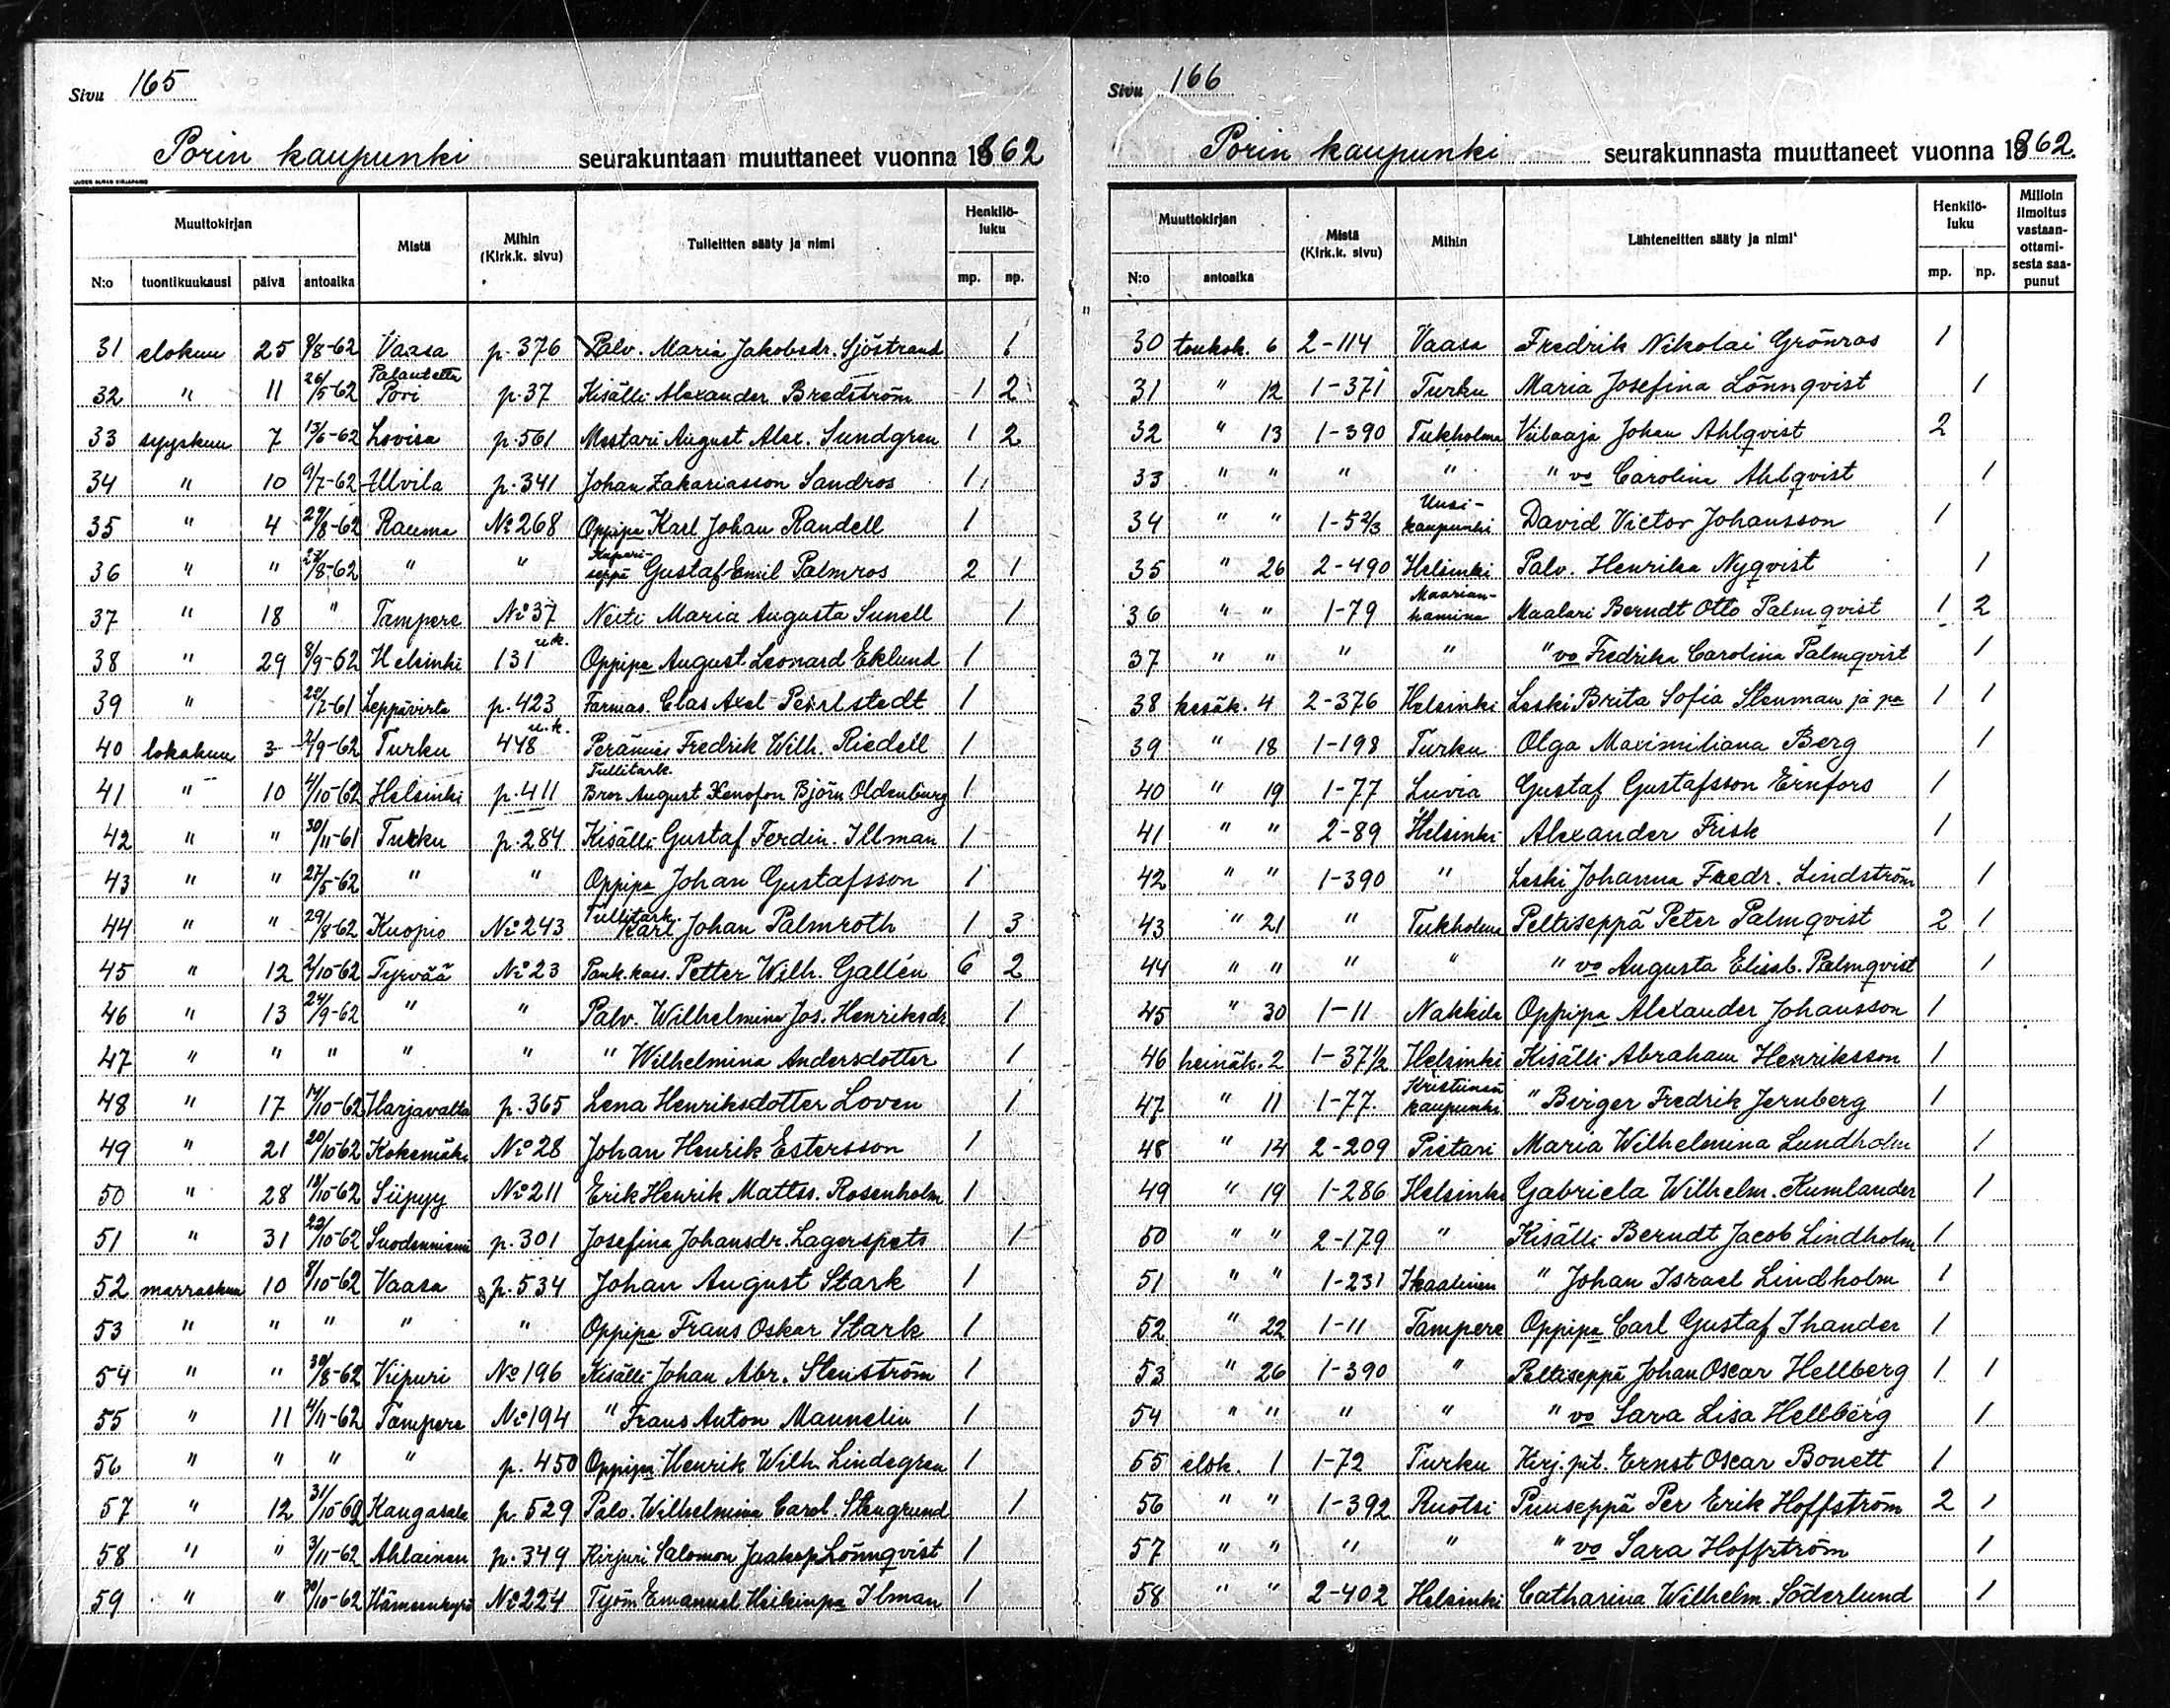 Sivu 165
Porin kaupunki seurakuntaan muuttaneet vuonna 1862
UUDEN AURAN KIRJAPAINO
Muuttokirjan Mistä Mihin (Kirk.k. sivu) Tulleitten sääty ja nimi Henkilö-luku
N:o tuontikuukausi päivä antoaika mp. np.
31 elokuu 25 9/8-62 Vaasa p.376 Palv. Maria Jakobsdr. Sjöstrand 1
32 " 11 26/5-62 Palautettu Pori p.37 Kisälli Alexander Bredström 1 2
33 syyskuu 7 13/6-62 Lovisa p.561 Mestari August Alex. Sundgren 1 2
34 " 10 9/7-62 Ulvila p.341 Johan Zakariasson Sandros 1
35 " 4 29/8-62 Rauma No 268 Oppipa Karl Johan Randell 1
36 " " 27/8-62 " " Kupari-seppä Gustaf Emil Palmros 2 1
37 " 18 " Tampere No 37 Neiti Maria Augusta Sunell 1
38 " 29 8/9-62 Helsinki 131 u.k. Oppipa August Leonard Eklund 1
39 " 22/7-61 Leppävirta p.423 Farmas. Clas Axel Perlstedt 1
40 lokakuu 3 2/9-62 Turku 478 u.k. Perämies Fredrik Wilh. Riedell 1
41 " 10 4/10-62 Helsinki p.411 Tullitark. Bror August Xenofon Björn Oldenburg 1
42 " " 30/11-61 Turku p.284 Kisälli Gustaf Ferdin. Illman 1
43 " " 27/5-62 " " Oppipa Johan Gustafsson 1
44 " " 29/8-62 Kuopio No 243 Tullitark. Karl Johan Palmroth 1 3
45 " 12 2/10-62 Tyrvää No 23 Pank.kass. Petter Wilh. Gallén 6 2
46 " 13 24/9-62 " " Palv. Wilhelmina Jos. Henriksdr 1
47 " " " " " " Wilhelmina Andersdotter 1
48 " 17 14/10-62 Harjavalta p.365 Lena Henriksdotter Loven 1
49 " 21 20/10-62 Kokemäki No 28 Johan Henrik Estersson 1
50 " 28 18/10-62 Siipyy No 211 Erik Henrik Mattss. Rosenholm 1
51 " 31 22/10-62 Suodenniemi p.301 Josefina Johansdr. Lagerspets 1
52 marraskuu 10 8/10-62 Vaasa p.534 Johan August Stark 1
53 " " " " " Oppipa Frans Oskar Stark 1
54 " " 30/8-62 Viipuri No 196 Kisälli Johan Abr. Stenström 1
55 " 11 4/11-62 Tampere No 194 " Frans Anton Mannelin 1
56 " " " " p.450 Oppipa Henrik Wilh. Lindegren 1
57 " 12 31/10-62 Kangasala p.529 Palv. Wilhelmina Carol. Stengrund 1
58 " " 3/11-62 Ahlainen p.349 Kirjuri Salomon Jaakop Lönnqvist 1
59 " " 30/10-62 Hämeenkyrö No 224 Työm Emanuel Heikinpa Ilman 1
Sivu 166
Porin kaupunki seurakunnasta muuttaneet vuonna 1862.
Muuttokirjan Mistä (Kirk.k. sivu) Mihin Lähteneitten sääty ja nimi Henkilö-luku Milloin ilmoitus vastaan-ottami-sesta saa-punut
N:o antoaika mp. np.
30 toukok. 6 2-114 Vaasa Fredrik Nikolai Grönros 1
31 " 12 1-371 Turku Maria Josefina Lönnqvist 1
32 " 13 1-390 Tukholma Viilaaja Johan Ahlqvist 2
33 " " " " " vo Carolina Ahlqvist 1
34 " " 1-52/3 Uusi-kaupunki David Victor Johansson 1
35 " 26 2-490 Helsinki Palv. Henrika Nyqvist 1
36 " " 1-79 Maarian-hamina Maalari Berndt Otto Palmqvist 1 2
37 " " " " " vo Fredrika Carolina Palmqvist 1
38 kesäk. 4 2-376 Helsinki Leski Brita Sofia Stenman ja pa 1 1
39 " 18 1-198 Turku Olga Maximiliana Berg 1
40 " 19 1-77 Luvia Gustaf Gustafsson Ernfors 1
41 " " 2-89 Helsinki Alexander Frisk 1
42 " " 1-390 " Leski Johanna Fredr. Lindström 1
43 " 21 " Tukholma Peltiseppä Peter Palmqvist 2 1
44 " " " " " vo Augusta Elisab. Palmqvist 1
45 " 30 1-11 Nakkila Oppipa Alexander Johansson 1
46 heinäk. 2 1-371/2 Helsinki Kisälli Abraham Henriksson 1
47 " 11 1-77. Kristiinan kaupunki " Birger Fredrik Jernberg 1
48 " 14 2-209 Pietari Maria Wilhelmina Lundholm 1
49 " 19 1-286 Helsinki Gabriela Wilhelm. Kumlander 1
50 " " 2-179 " Kisälli Berndt Jacob Lindholm 1
51 " " 1-231 Ikaalinen " Johan Israel Lindholm 1
52 " 22 1-11 Tampere Oppipa Carl Gustaf Ihander 1
53 " 26 1-390 " Peltiseppä Johan Oscar Hellberg 1 1
54 " " " " " vo Sara Lisa Hellberg 1
55 elok. 1 1-72 Turku Kirj.pit. Ernst Oscar Bonett 1
56 " " 1-392 Ruotsi Puuseppä Per Erik Hoffström 2 1
57 " " " " " vo Sara Hoffström 1
58 " " 2-402 Helsinki Catharina Wilhelm. Söderlund 1